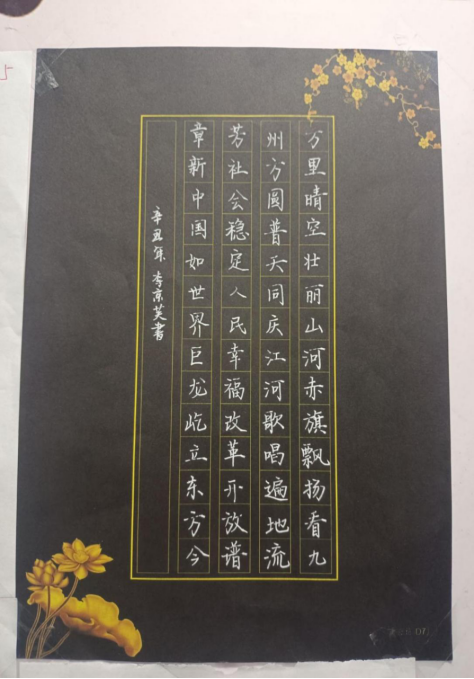 万里晴空壮丽山河赤旗飘扬看九
州方圓普天同庆江河歌唱遍地流
芳社会稳定人民幸福改革开放谱
章新中国如世界巨龙屹立东方今
辛丑年 李京英書